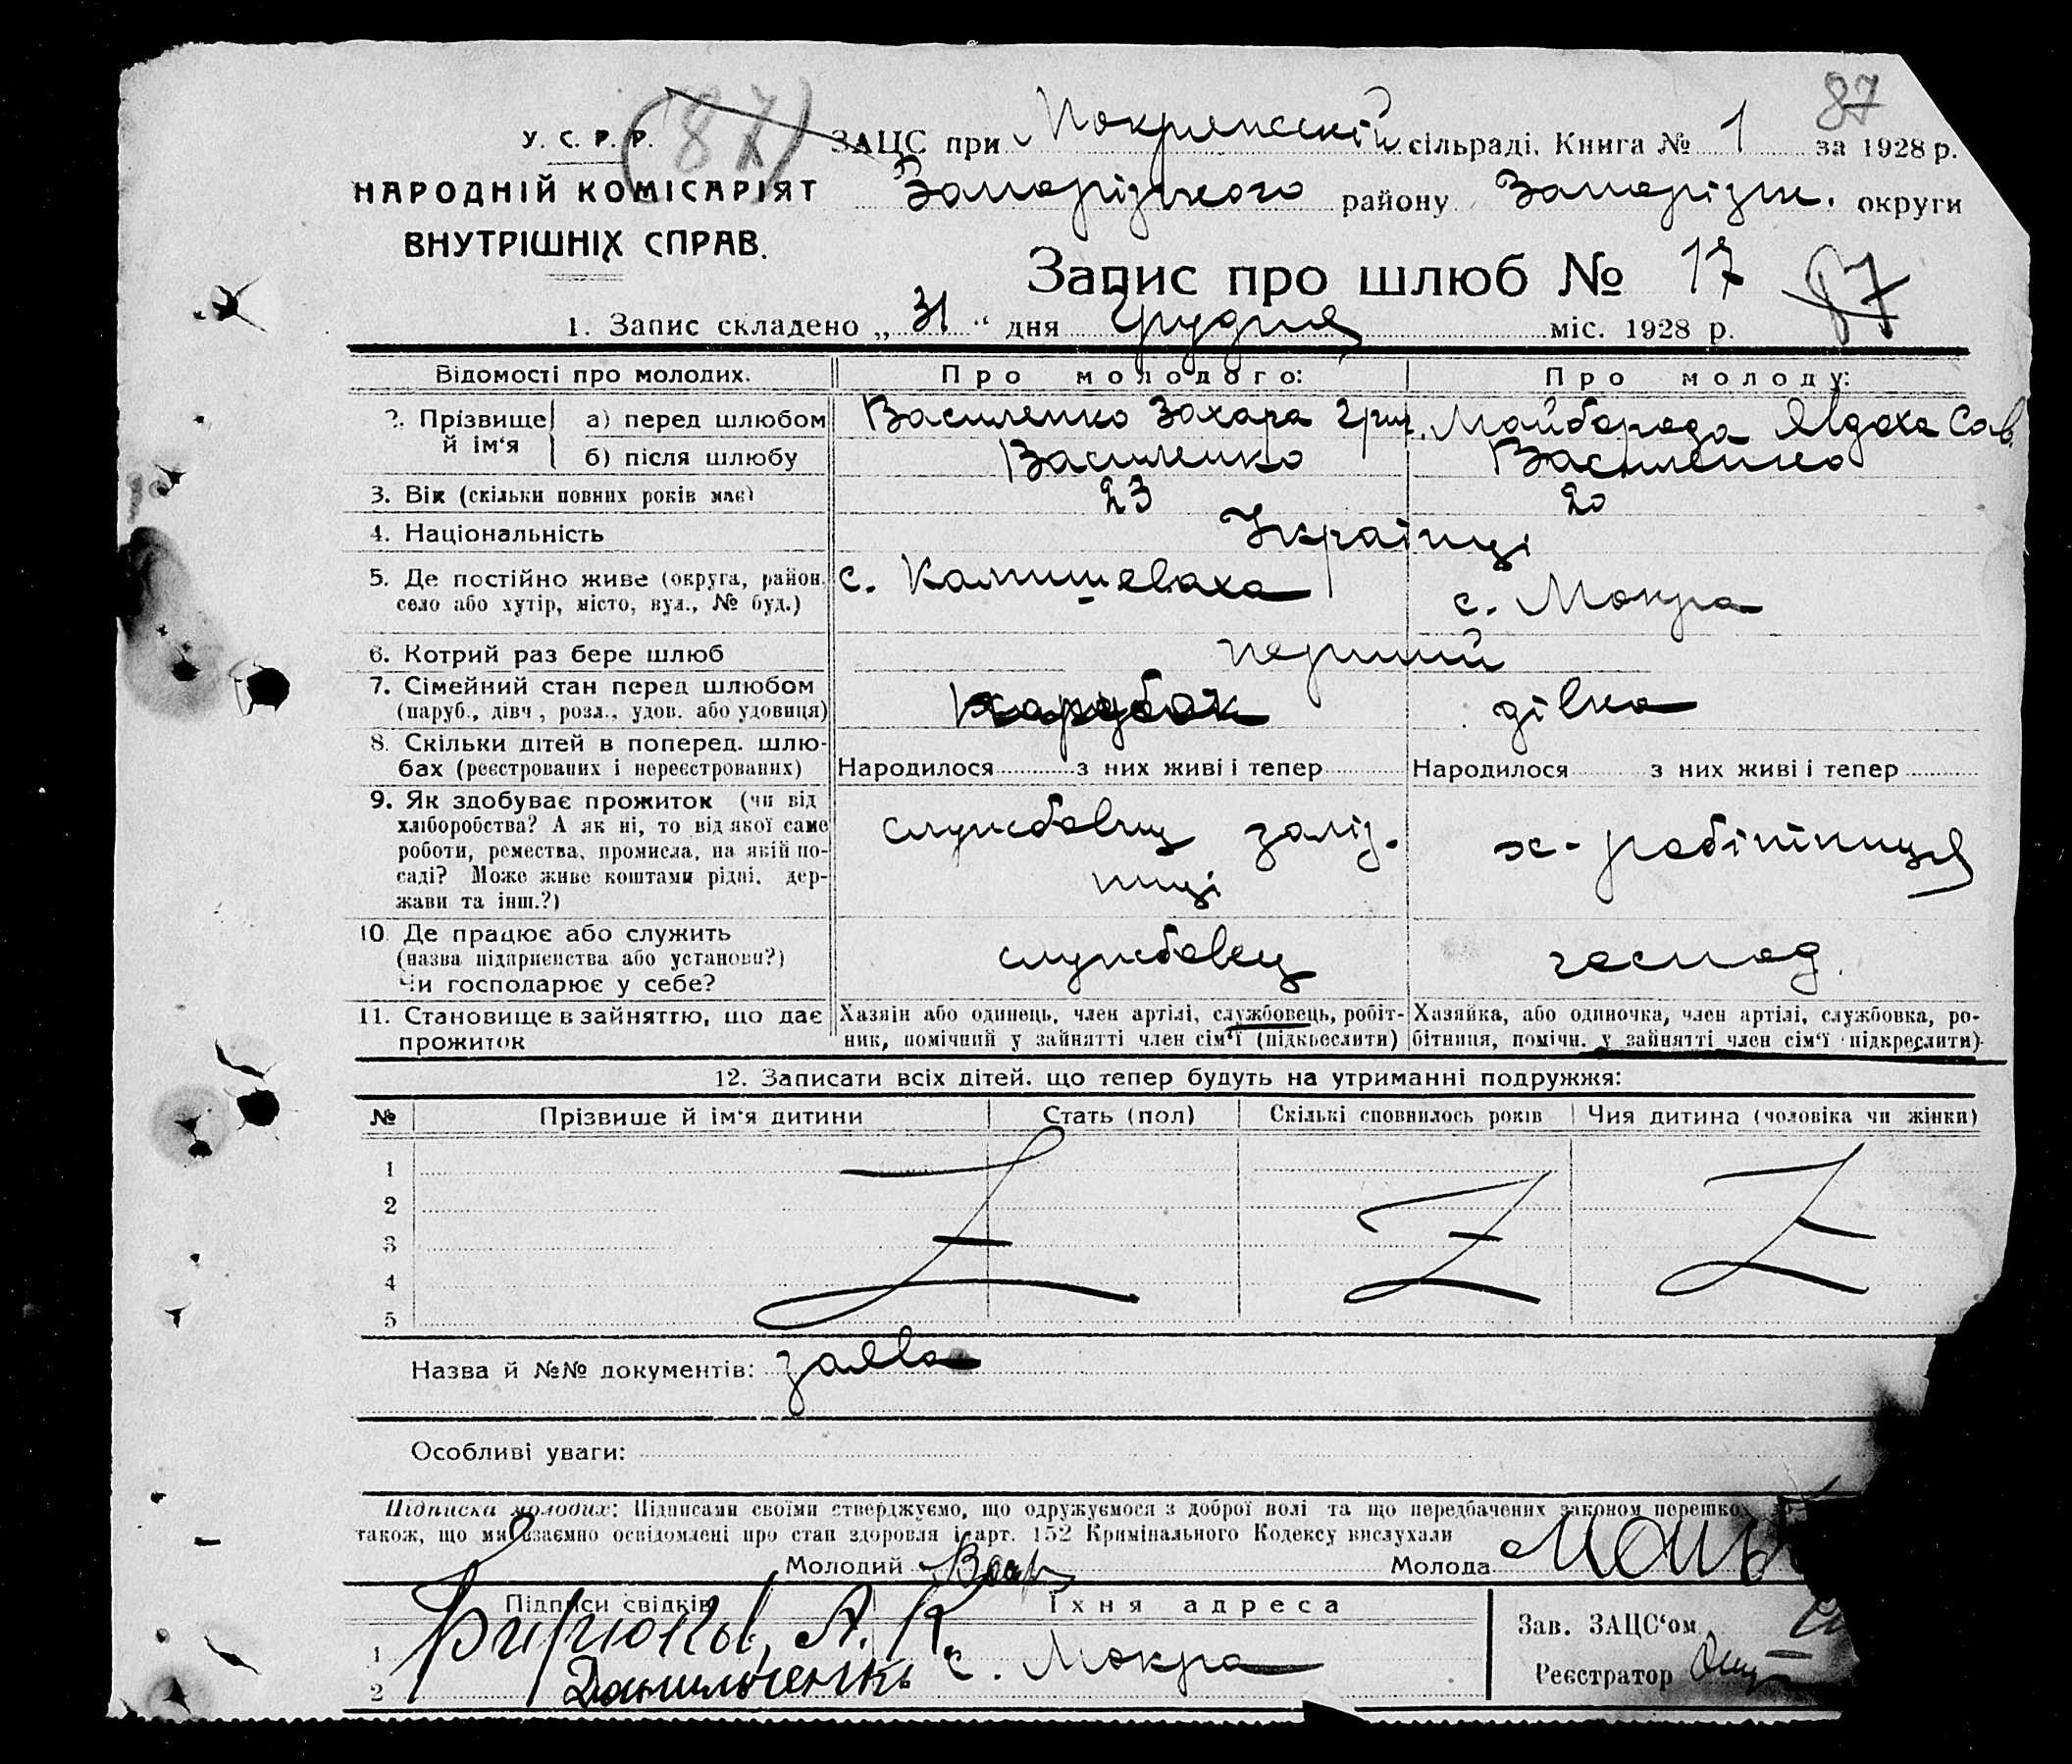 87
У. С. Р. Р. (87) ЗАЦС при Мокрянській сільраді. Книга № 1 за 1928 р.
НАРОДНІЙ КОМІСАРІЯТ Запорізького району Запоріжж. округи
ВНУТРІШНІХ СПРАВ.
Запис про шлюб № 17 87
1. Запис складено „ 31 “ дня грудня міс. 1928 р.
Відомості про молодих. Про молодого: Про молоду:
2. Прізвище й ім‘я а) перед шлюбом Василенко Захара Григ. Майборода Явдоха Сав.
б) після шлюбу Василенко Василенко
3. Вік (скільки повних років має) 23 20
4. Національність Українці
5. Де постійно живе (округа, район, с. Камишеваха с. Мокра
село або хутір, місто, вул., № буд.)
6. Котрий раз бере шлюб перший
7. Сімейний стан перед шлюбом парубок дівка
(паруб., дівч., розл., удов. або удовиця)
8. Скільки дітей в поперед. шлю-
бах (реєстрованих і нереєстрованих) Народилося з них живі і тепер Народилося з них живі і тепер
9. Як здобуває прожиток (чи від
хліборобства? А як ні, то від якої саме службовец заліз- х- робітниця
роботи, ремества, промисла, на якій по-
саді? Може живе коштами рідні, дер- ниці
жави та інш.?)
10. Де працює або служить службовец господ.
(назва підприємства або установи?)
Чи господарює у себе?
11. Становище в зайняттю, що дає Хазяїн або одинець, член артілі, службовець, робіт- Хазяйка, або одиночка, член артілі, службовка, ро-
прожиток ник, помічний у зайнятті член сім‘ї (підкреслити) бітниця, помічн. у зайнятті член сім‘ї підкреслити)
12. Записати всіх дітей, що тепер будуть на утриманні подружжя:
№ Прізвище й ім‘я дитини Стать (пол) Скількі сповнилось років Чия дитина (чоловіка чи жінки)
1
2
3
4
5
Назва й №№ документів: заява
Особливі уваги:
Підписка молодих: Підписами своїми стверджуємо, що одружуємося з доброї волі та що передбачених законом перешко
також, що ми взаємно освідомлені про стан здоровля і арт. 152 Кримінального Кодексу вислухали
Молодий Молода
Підписи свідків Їхня адреса
Зав. ЗАЦС‘ом
1 Бирюкы, А. К. с. Мокра
Реєстратор
2 Данильченко